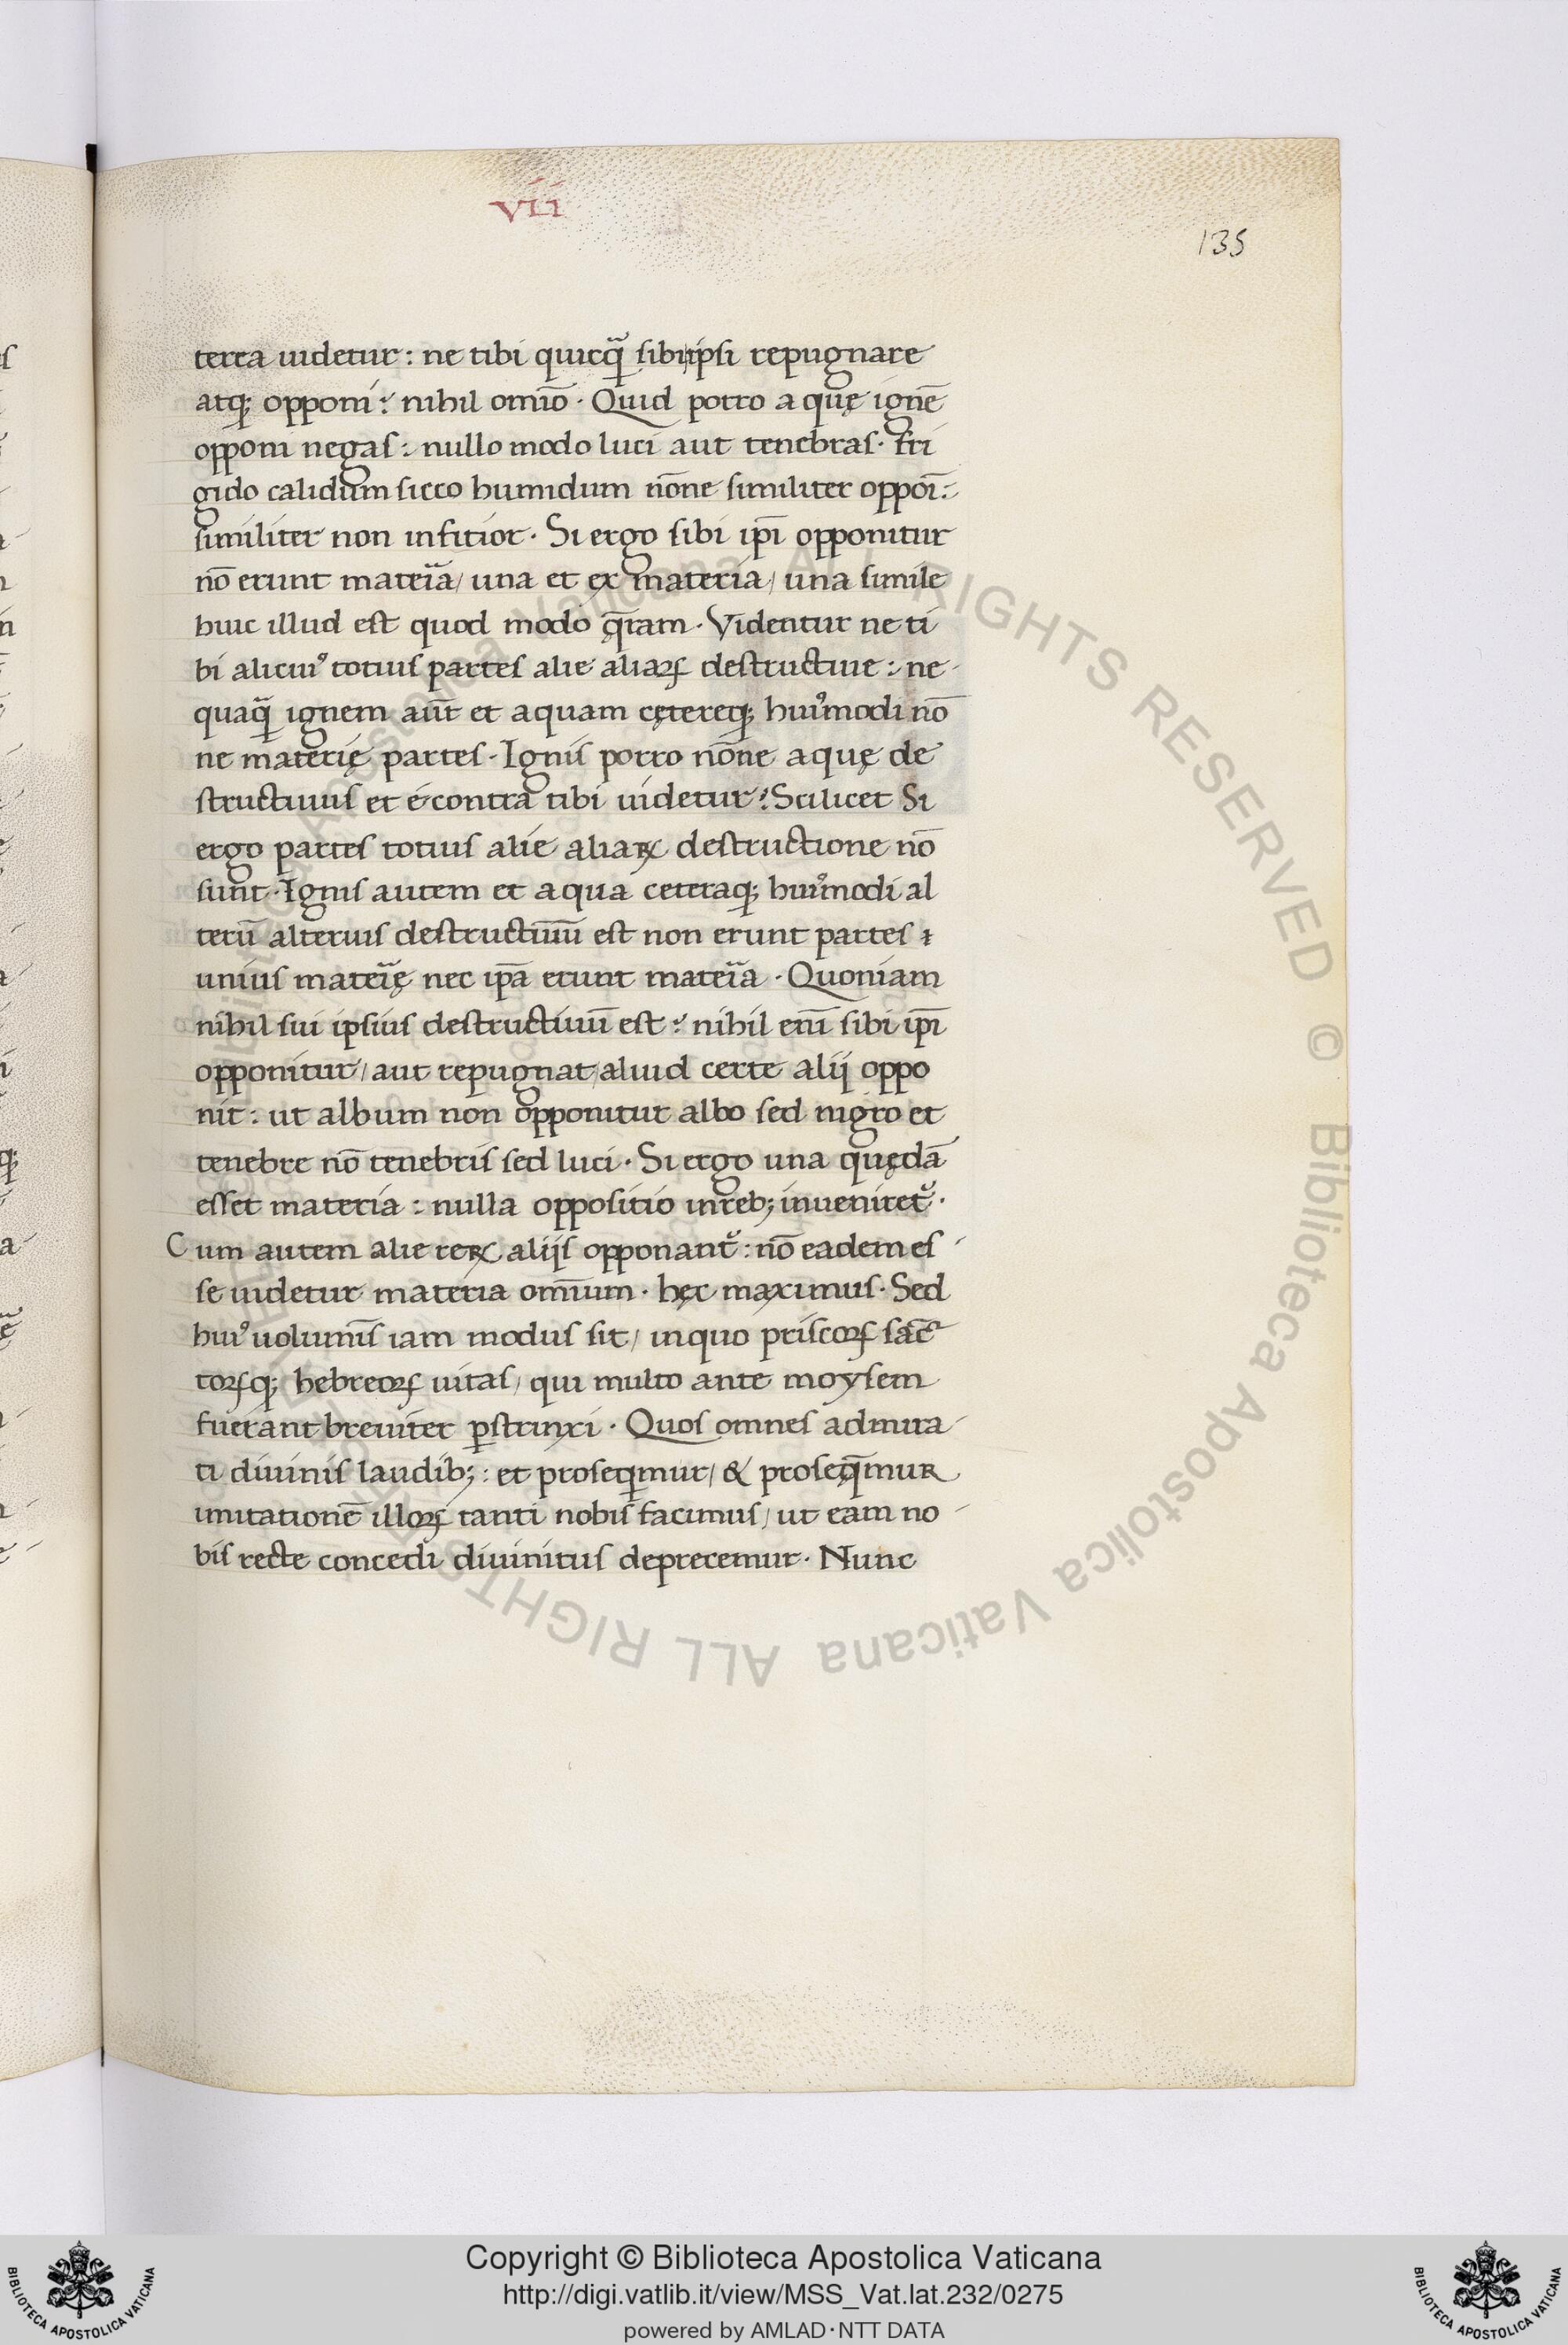 vii
135
terea uidetur: ne tibi quicq̃ sibiipsi repugnare
atq; opponi? nihil omīo. Quid porro aquę ignē
opponi negas: nullo modo luci aut tenebras. fri
gido calidum sicco humidum nōne similiter oppoī:
similiter non infitior. Si ergo sibi ipī opponitur
nō erunt materia/ una et ex materia/ una simile
huic illud est quod modo q̄ram. Videntur ne ti
bi alicui᾽ totius partes alie aliaꝝ destructiue: ne
quaq̃ ignem aūt et aquam cętereq; hui᾽modi nō
ne materię partes. Ignis porro nōne aquę de
structiuus et é contra tibi uidetur? Scilicet Si
ergo partes totius alie aliaꝝ destructione nō
sunt. Ignis autem et aqua ceteraq; hui᾽modi al
terū alterius destructiuū est non erunt partes
unius materię nec ipā erunt materia. Quoniam
nihil sui ipsius destructiuū est? nihil enī sibi ipī
opponitur/ aut repugnat/ aliud certe alij oppo
nit: ut album non opponitur albo sed nigro et
tenebre nō tenebris sed luci. Si ergo una quędā
esset materia: nulla oppositio in reb; inueniret᷑.
Cum autem alie reꝝ aliis opponant᷑: nō eadem es
se uidetur materia omīum. hęc maximus. Sed
hui᾽ uoluminis iam modus sit/ in quo priscoꝝ sāc
toꝝq; hebreoꝝ uitas/ qui multo ante moysem
fuerant breuiter ꝑstrinxi. Quos omnes admira
ti diuinis laudib;: et proseqimur/ & proseq̄mur
imitationē illoꝝ tanti nobis facimus/ ut eam no
bis recte concedi diuinitus deprecemur. Nunc
Biblioteca Apostolica Vaticana ALL RIGHTS RESERVED © Biblioteca Apostolica Vaticana ALL RIGHTS
Copyright © Biblioteca Apostolica Vaticana
http://digi.vatlib.it/view/MSS_Vat.lat.232/0275
powered by AMLAD·NTT DATA
BIBLIOTECA APOSTOLICA VATICANA
BIBLIOTECA APOSTOLICA VATICANA